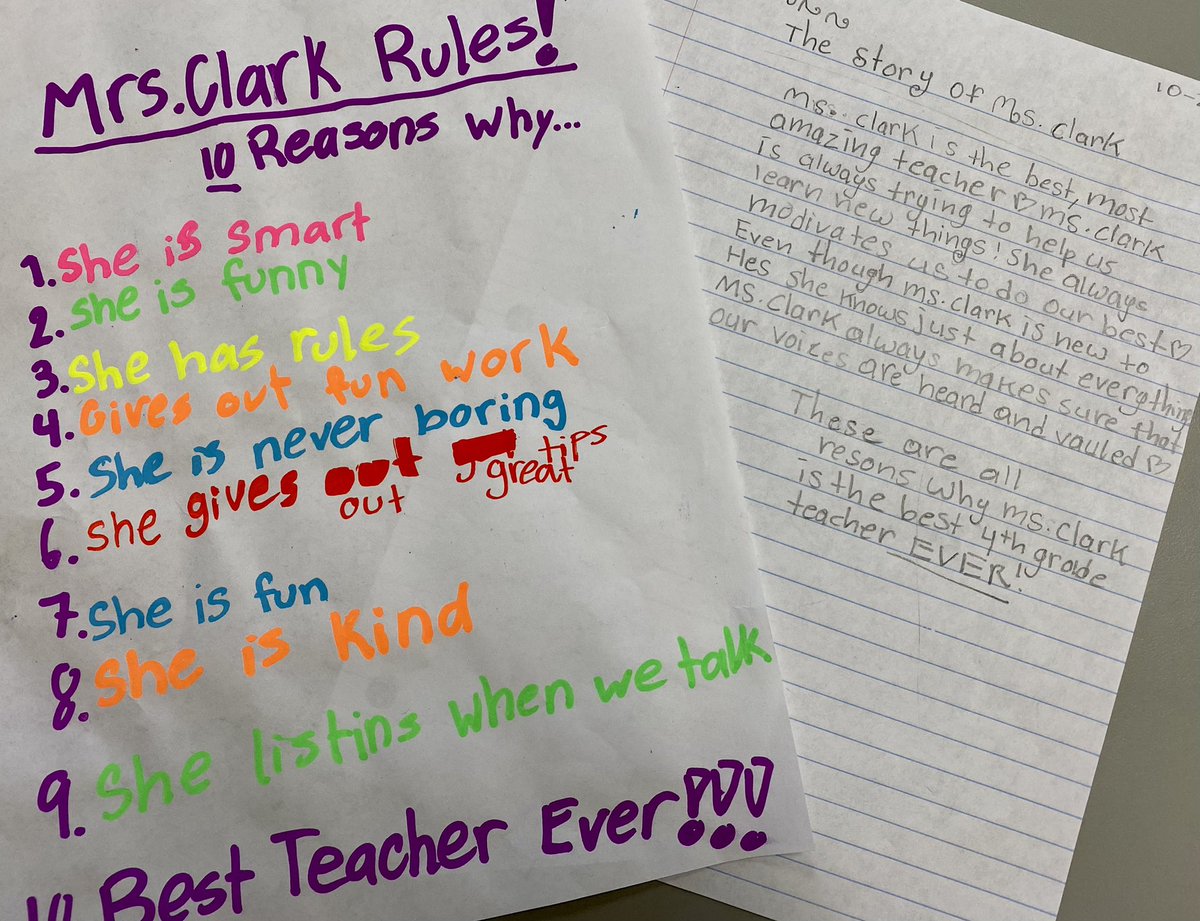 Mrs.Clark Rules!
10 Reasons Why...
1. She is smart
2. She is funny
3. She has rules
4. Gives out fun work
5. She is never boring
6. She gives out great tips
7. She is fun
8. She is kind
9. She listins when we talk
10 Best Teacher Ever!!!
10-
The Story of Ms. Clark
Ms. Clark is the best, most
amazing teacher ♡ Ms. Clark
is always trying to help us
learn new things! She always
modivates us to do our best ♡
Even though Ms. Clark is new to
Hes she knows just about everything
Ms. Clark always makes sure that
our voices are heard and vauled ♡
These are all
resons why Ms. Clark
is the best 4th grade
teacher EVER!